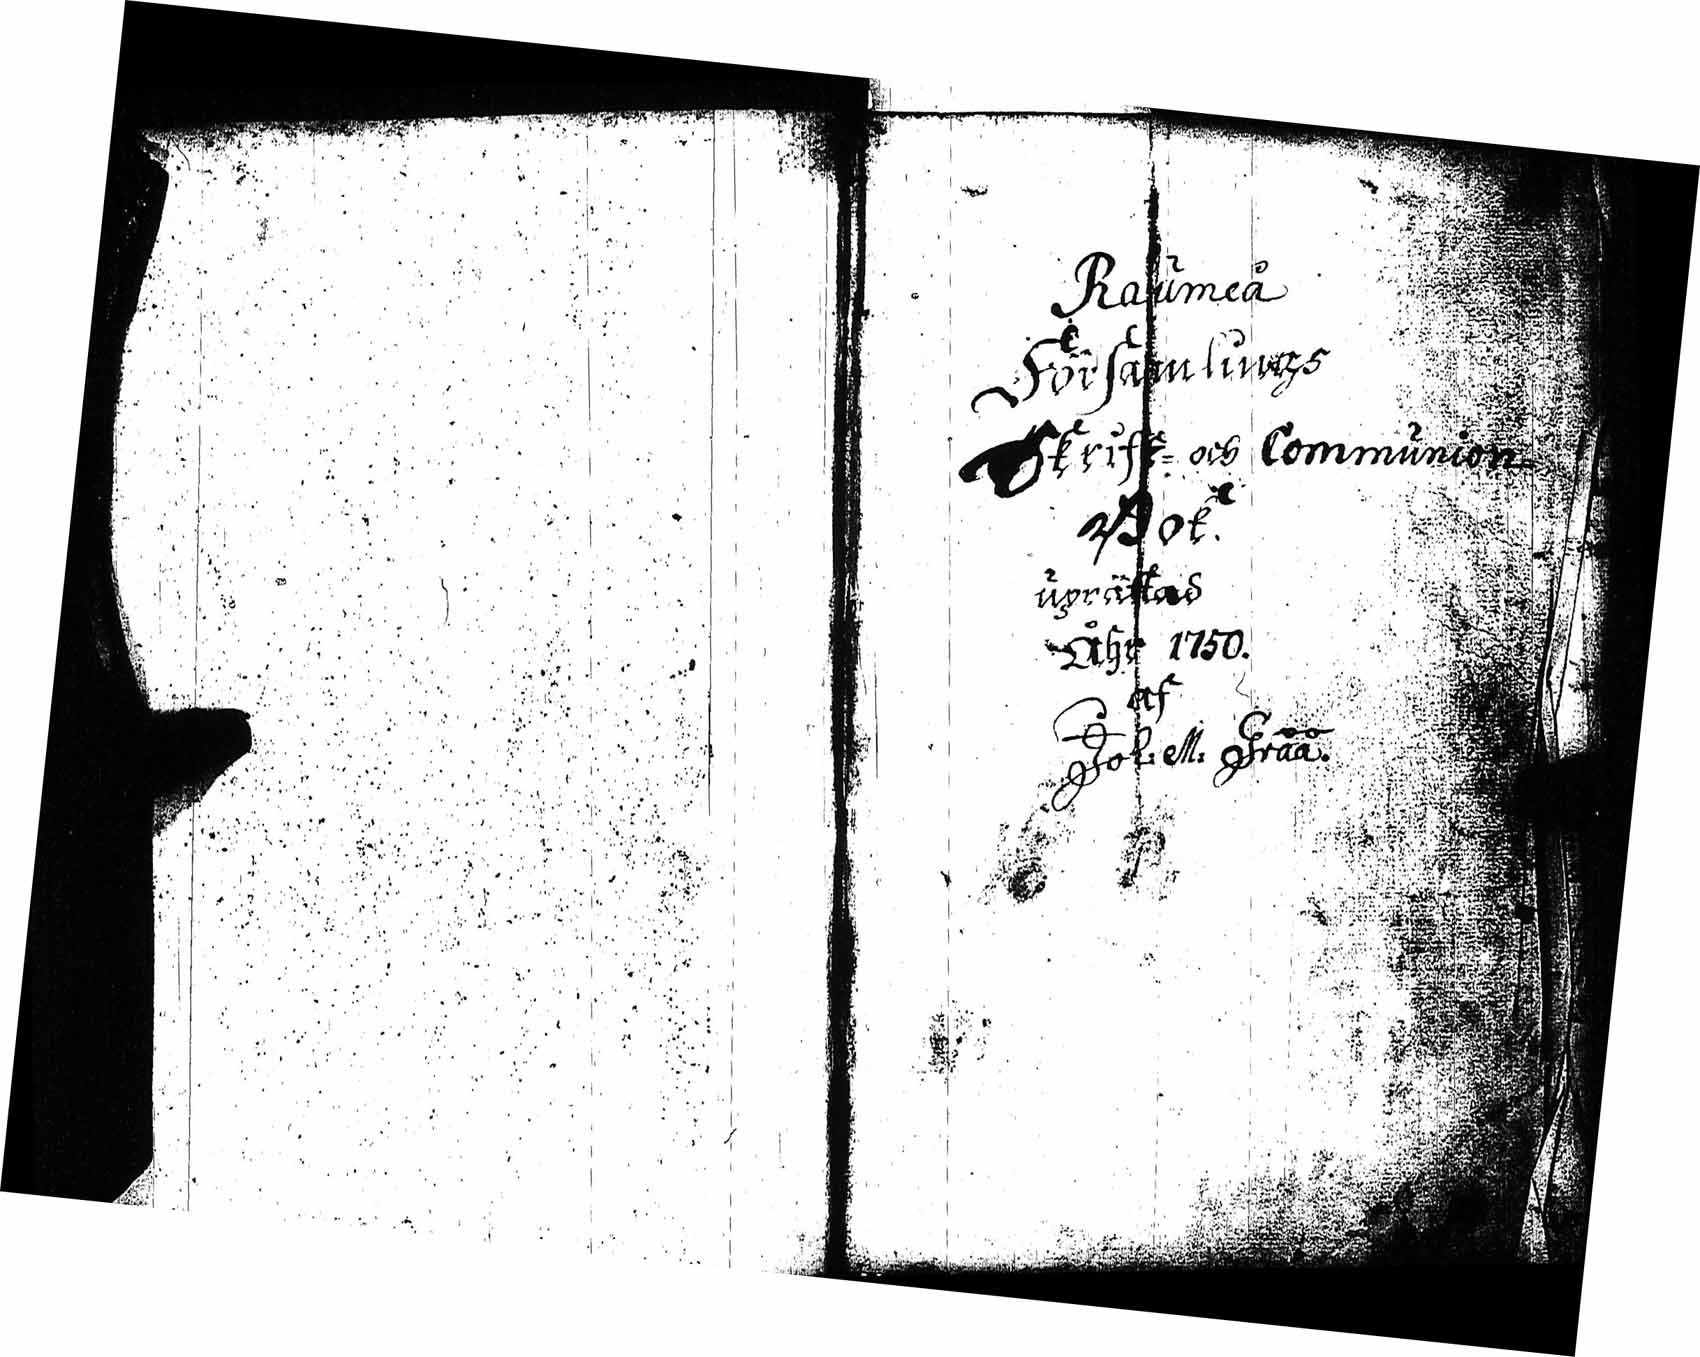 Raumeå
Församlings
Skrift= och Communion
Bok.
uprättad
Åhr 1750.
af
Joh: M: Gråå.